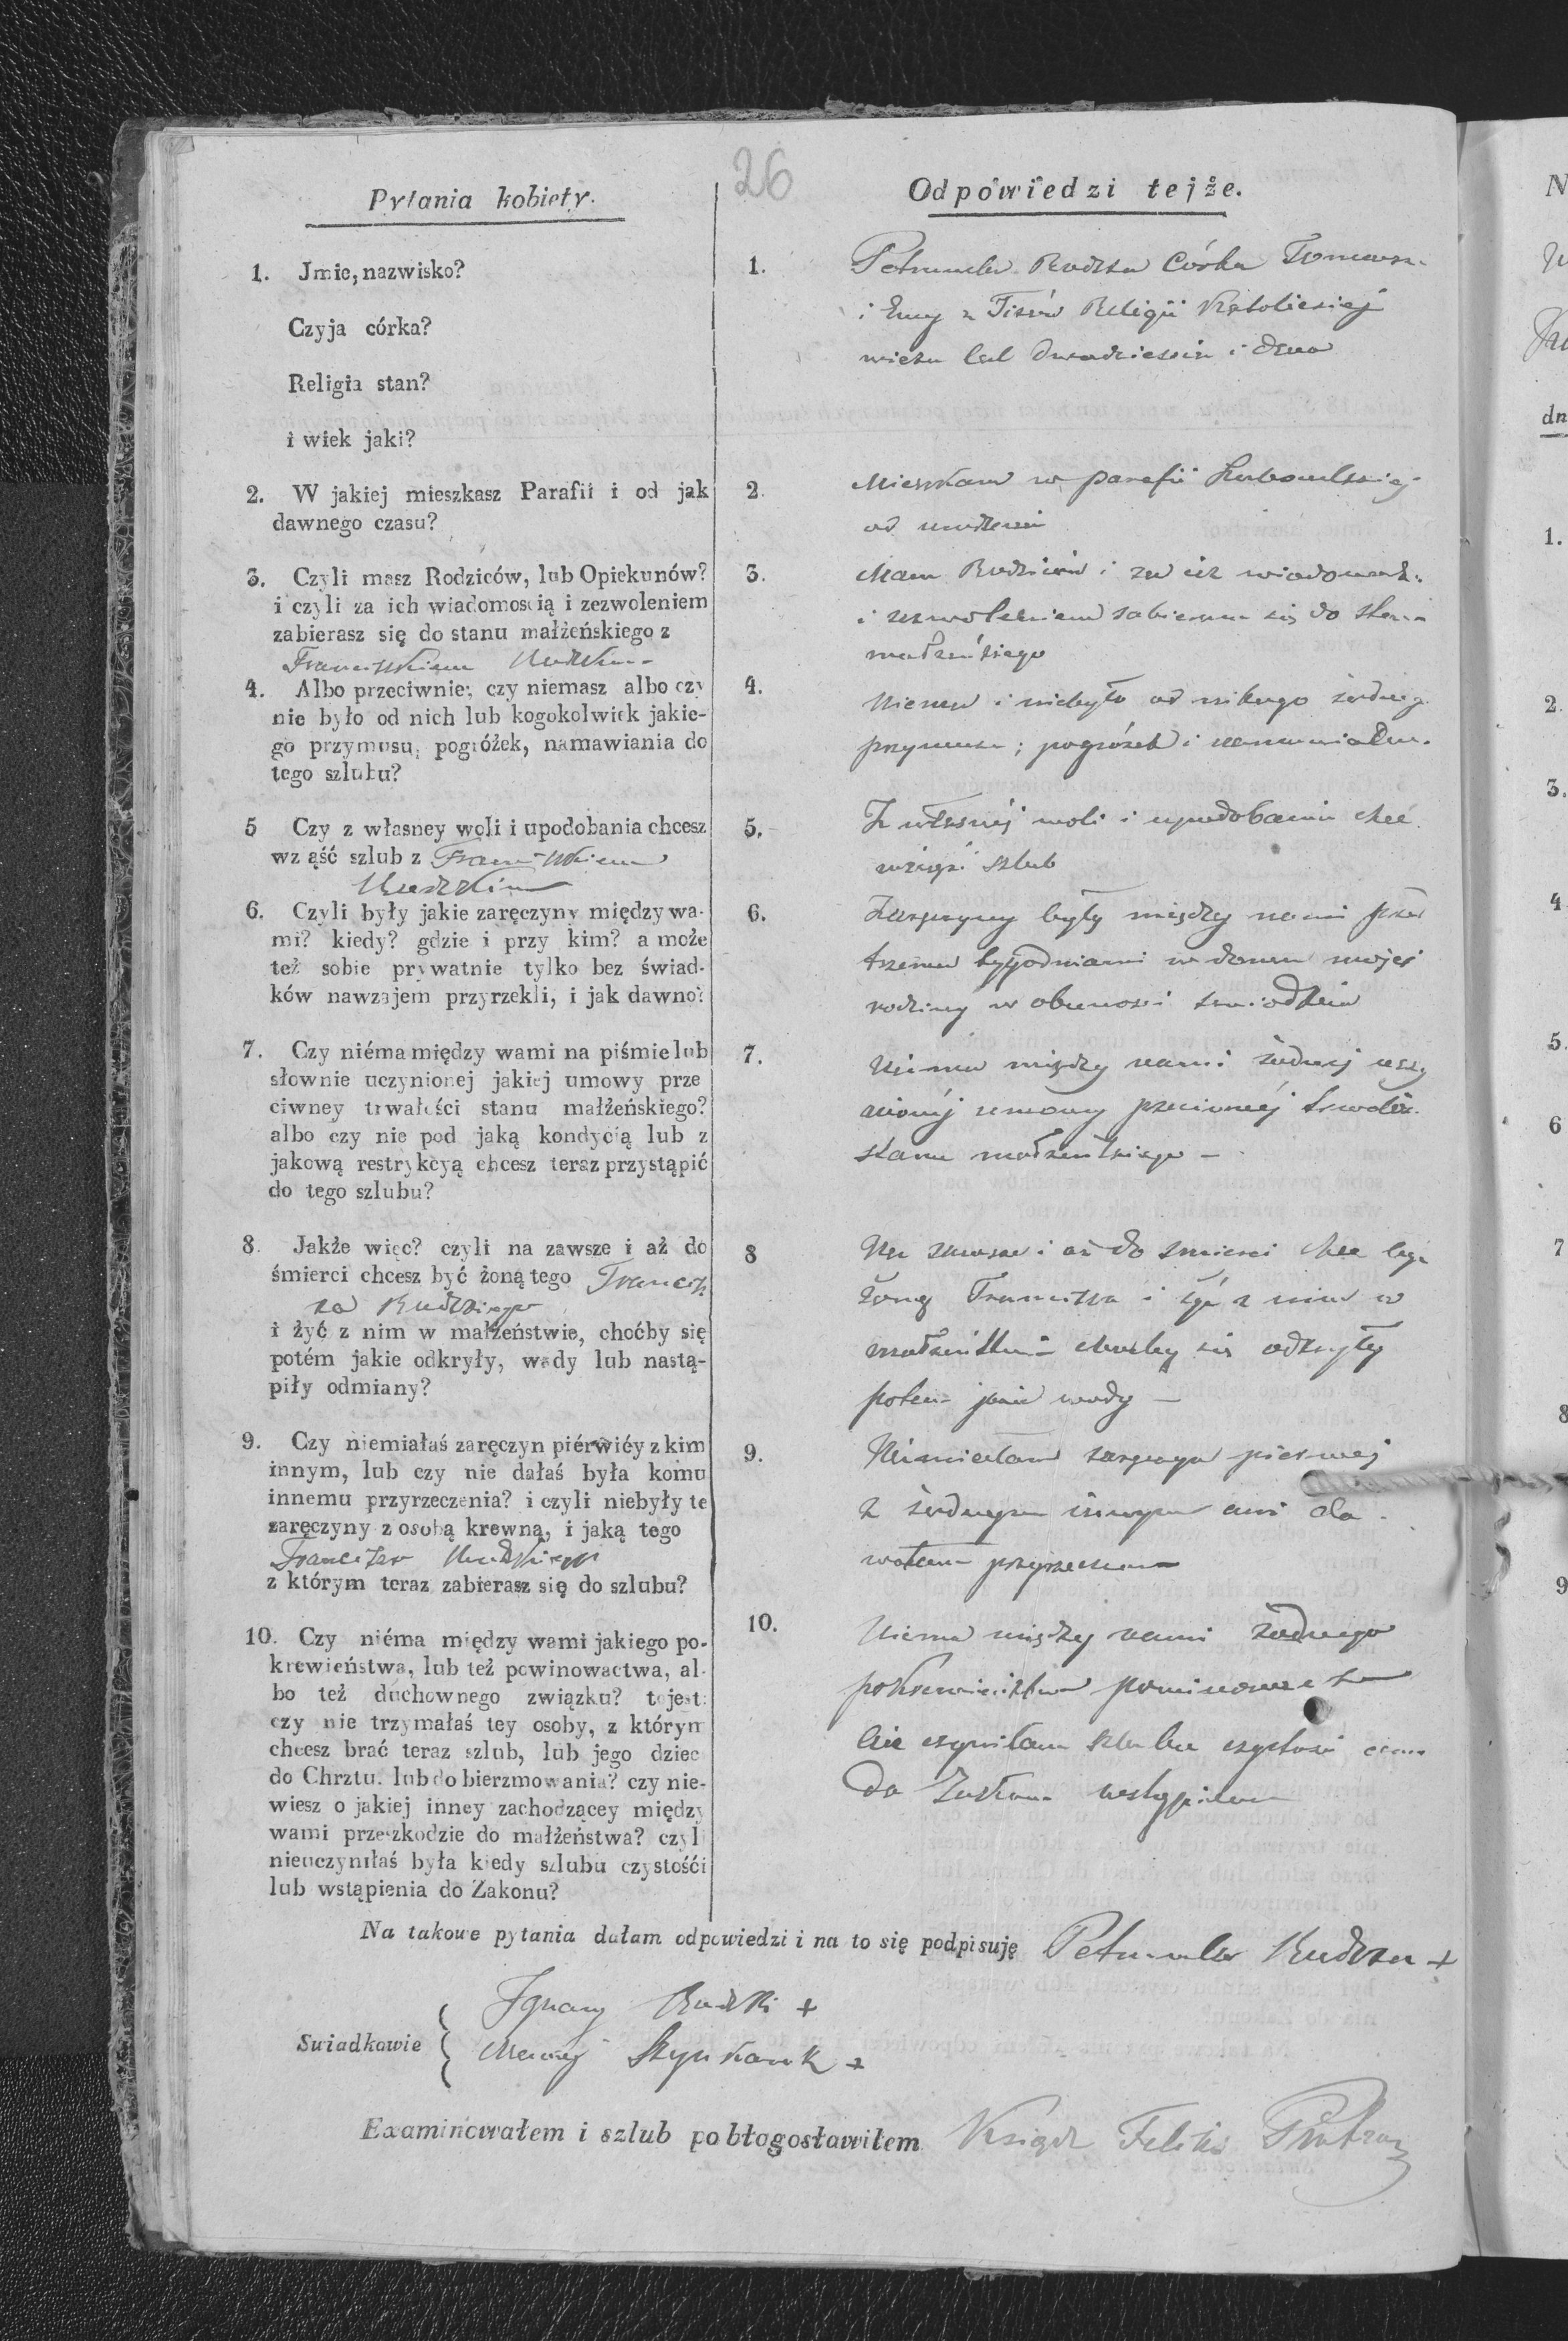 26
Pytania kobiety.
Odpowiedzi tejże.
1. Jmie, nazwisko?
Czyja córka?
Religia stan?
i wiek jaki?
1. Petronela Rudzka Córka Tomasza
i Ewy z Religii Katolickiej
wieku lat dwadzieścia i dwa
2. W jakiej mieszkasz Parafii i od jak
dawnego czasu?
2. Mieszkam w parafii
od urodzenia
3. Czyli masz Rodziców, lub Opiekunów?
i czyli za ich wiadomością i zezwoleniem
zabierasz się do stanu małżeńskiego z
Franciszkiem Rudzkim
3. Mam Rodziców i za ich
i zezwoleniem zabieram się do
małżeńskiego
4. Albo przeciwnie, czy niemasz albo czy
nie było od nich lub kogokolwiek jakie-
go przymusu, pogróżek, namawiania do
tego szlubu?
4. Niemam i niebyło od nikogo żadnego
przymusu; pogróżek i
5 Czy z własney woli i upodobania chcesz
wziąść szlub z Franciszkiem
Rudzkim
5. Z własnéj woli i upodobania chcę
wziąść szlub
6. Czyli były jakie zaręczyny między wa-
mi? kiedy? gdzie i przy kim? a może
też sobie prywatnie tylko bez świad-
ków nawzajem przyrzekli, i jak dawno?
6. Zaręczyny były między nami przed
trzema tygodniami w domu mojej
rodziny w obecności
7. Czy niéma między wami na piśmie lub
słownie uczynionej jakiej umowy prze
ciwney trwałości stanu małżeńskiego?
albo czy nie pod jaką kondycią lub z
jakową restrykcyą chcesz teraz przystąpić
do tego szlubu?
7. Niema między nami żadnej uczy
nionéj umowy przeciwnéj trwałości
stanu małżeńskiego –
8. Jakże więc? czyli na zawsze i aż do
śmierci chcesz być żoną tego Francisz
ka Rudzkiego
i żyć z nim w małżeństwie, choćby się
potém jakie odkryły, wady lub nastą-
piły odmiany?
8 Na zawsze i aż do śmierci chcę być
żoną Franciszka i żyć z nim w
małżeństwie choćby się odkryły
potem jakie wady —
9. Czy niemiałaś zaręczyn piérwiéy z kim
innym, lub czy nie dałaś była komu
innemu przyrzeczenia? i czyli niebyły te
zaręczyny z osobą krewną, i jaką tego
Franciszka Rudzkiego
z którym teraz zabierasz się do szlubu?
9. Niemiałam zaręczyn pierwiej
z żadnym innym ani da
wałam przyrzeczenia
10. Czy niéma między wami jakiego po-
krewieństwa, lub też powinowactwa, al-
bo też duchownego związku? tojest:
czy nie trzymałaś tey osoby, z którym
chcesz brać teraz szlub, lub jego dziec
do Chrztu, lub do bierzmowania? czy nie-
wiesz o jakiej inney zachodzącey między
wami przeszkodzie do małżeństwa? czyli
nieuczyniłaś była kiedy szlubu czystości
lub wstąpienia do Zakonu?
10. Niema między nami żadnego
pokrewieństwa powinowactwa
Nie czyniłam szlubu czystości
do Zakonu wstąpienia
Na takowe pytania dałam odpowiedzi i na to się podpisuję Petronela Rudzka +
Swiadkowie { Ignacy Rudzki +
+
Examinowałem i szlub pobłogosławiłem Ksiądz Felix